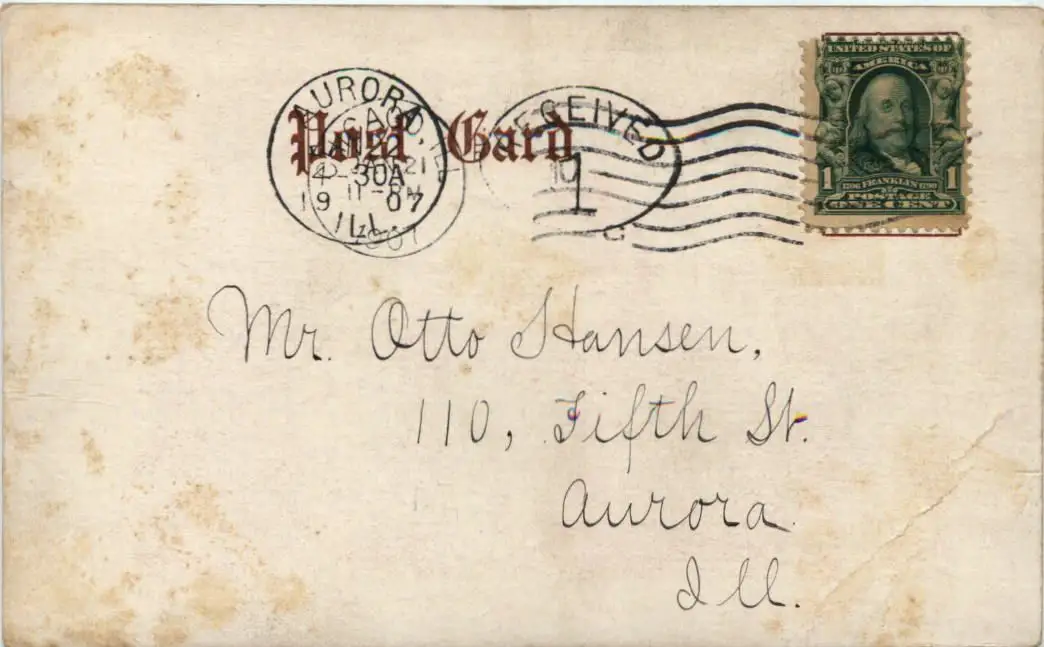 Post Card
AURORA
30A
19 07
ILL.
RECEIVED
1
UNITED STATES OF
AMERICA
1 1
1706 FRANKLIN 1790
POSTAGE
ONE CENT
Mr. Otto Hansen,
110, Fifth St.
Aurora
Ill.